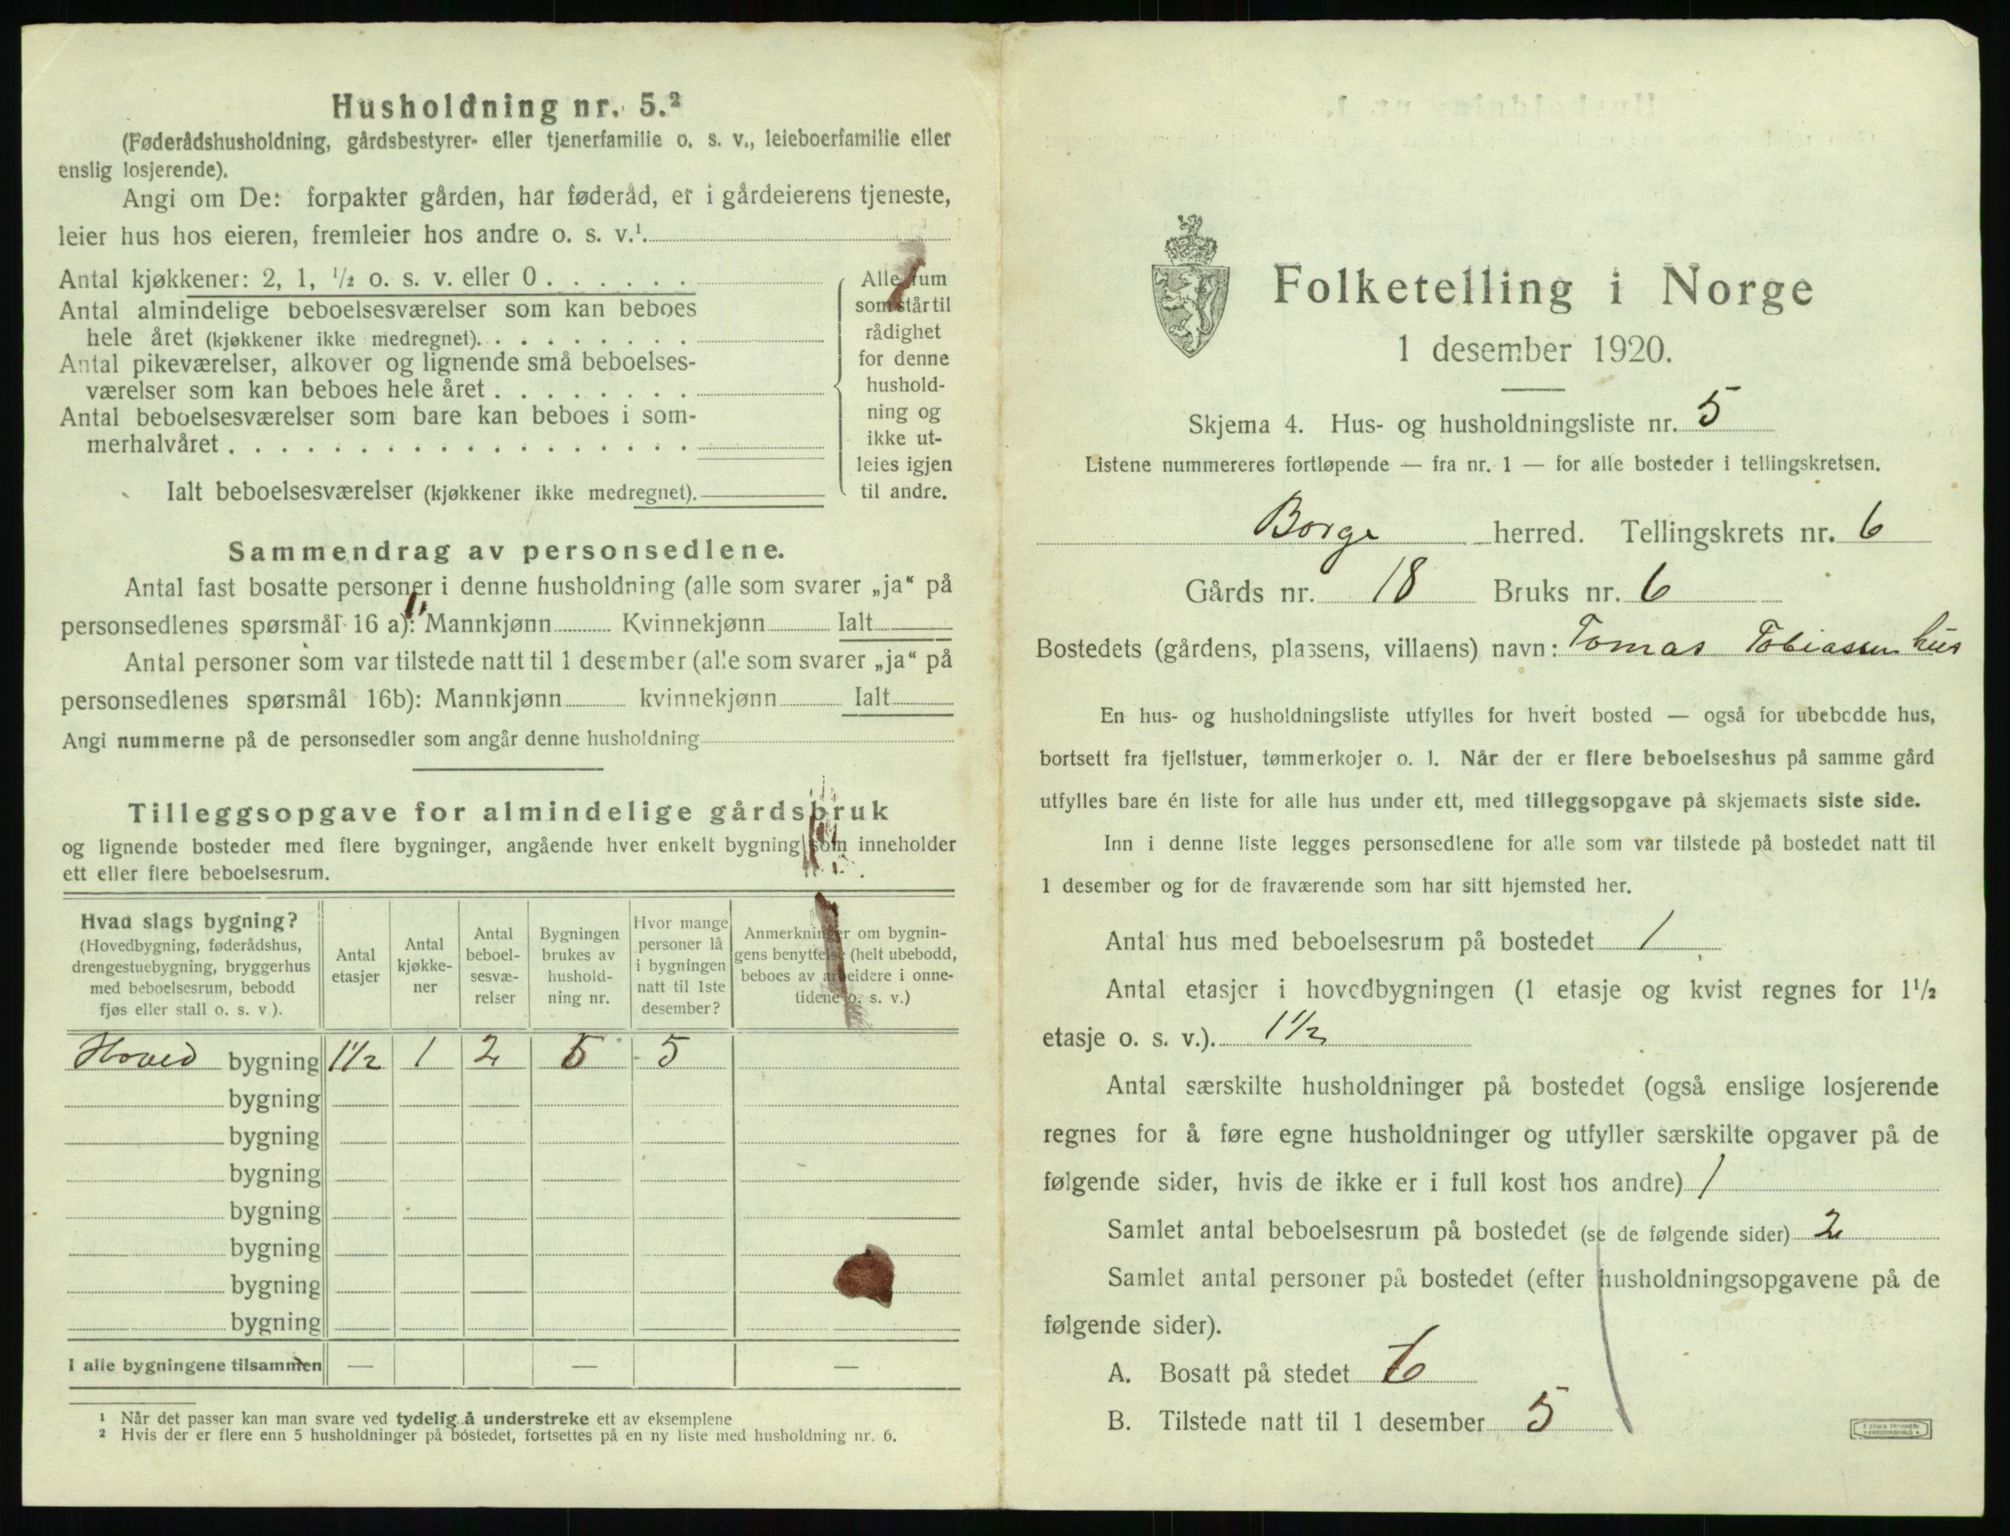 Husholdning nr. 5.²
(Føderådshusholdning, gårdsbestyrer- eller tjenerfamilie o. s. v., leieboerfamilie eller
enslig losjerende).
Angi om De: forpakter gården, har føderåd, er i gårdeierens tjeneste,
leier hus hos eieren, fremleier hos andre o. s. v.¹.
Antal kjøkkener: 2, 1, ½ o. s. v. eller 0 . . . . . .
Antal almindelige beboelsesværelser som kan beboes
hele året (kjøkkener ikke medregnet). . . . . . . . .
Antal pikeværelser, alkover og lignende små beboelses-
værelser som kan beboes hele året . . . . . . . .
Antal beboelsesværelser som bare kan beboes i som-
merhalvåret . . . . . . . . . . . . . . . . . .
Ialt beboelsesværelser (kjøkkener ikke medregnet).
Alle rum
som står til
rådighet
for denne
hushold-
ning og
ikke ut-
leies igjen
til andre.
Sammendrag av personsedlene.
Antal fast bosatte personer i denne husholdning (alle som svarer „ja“ på
personsedlenes spørsmål 16 a): Mannkjønn Kvinnekjønn Ialt
Antal personer som var tilstede natt til 1 desember (alle som svarer „ja“ på
personsedlenes spørsmål 16b): Mannkjønn kvinnekjønn Ialt
Angi nummerne på de personsedler som angår denne husholdning
Tilleggsopgave for almindelige gårdsbruk
og lignende bosteder med flere bygninger, angående hver enkelt bygning som inneholder
ett eller flere beboelsesrum.
Hvad slags bygning?
(Hovedbygning, føderådshus,
drengestuebygning, bryggerhus
med beboelsesrum, bebodd
fjøs eller stall o. s. v ).
Antal
etasjer
Antal
kjøkke-
ner
Antal
beboel-
sesvæ-
relser
Bygningen
brukes av
hushold-
ning nr.
Hvor mange
personer lå
i bygningen
natt til 1ste
desember?
Anmerkninger om bygnin-
gens benyttelse (helt ubebodd,
beboes av arbeidere i onne-
tidene o. s. v.)
Hoved bygning 1½ 1 2 5 5
bygning
bygning
bygning
bygning
bygning
bygning
bygning
I alle bygningene tilsammen — — —
¹ Når det passer kan man svare ved tydelig å understreke ett av eksemplene
² Hvis der er flere enn 5 husholdninger på bostedet, fortsettes på en ny liste med husholdning nr. 6.
Folketelling i Norge
1 desember 1920.
Skjema 4. Hus- og husholdningsliste nr. 5
Listene nummereres fortløpende — fra nr. 1 — for alle bosteder i tellingskretsen.
Borge herred. Tellingskrets nr. 6
Gårds nr. 18 Bruks nr. 6
Bostedets (gårdens, plassens, villaens) navn: Tomas Tobiassen hus
En hus- og husholdningsliste utfylles for hvert bosted — også for ubebodde hus,
bortsett fra fjellstuer, tømmerkojer o. l. Når der er flere beboelseshus på samme gård
utfylles bare én liste for alle hus under ett, med tilleggsopgave på skjemaets siste side.
Inn i denne liste legges personsedlene for alle som var tilstede på bostedet natt til
1 desember og for de fraværende som har sitt hjemsted her.
Antal hus med beboelsesrum på bostedet 1
Antal etasjer i hovedbygningen (1 etasje og kvist regnes for 1½
etasje o. s. v.). 1½
Antal særskilte husholdninger på bostedet (også enslige losjerende
regnes for å føre egne husholdninger og utfyller særskilte opgaver på de
følgende sider, hvis de ikke er i full kost hos andre) 1
Samlet antal beboelsesrum på bostedet (se de følgende sider) 2
Samlet antal personer på bostedet (efter husholdningsopgavene på de
følgende sider).
A. Bosatt på stedet 6
B. Tilstede natt til 1 desember 5